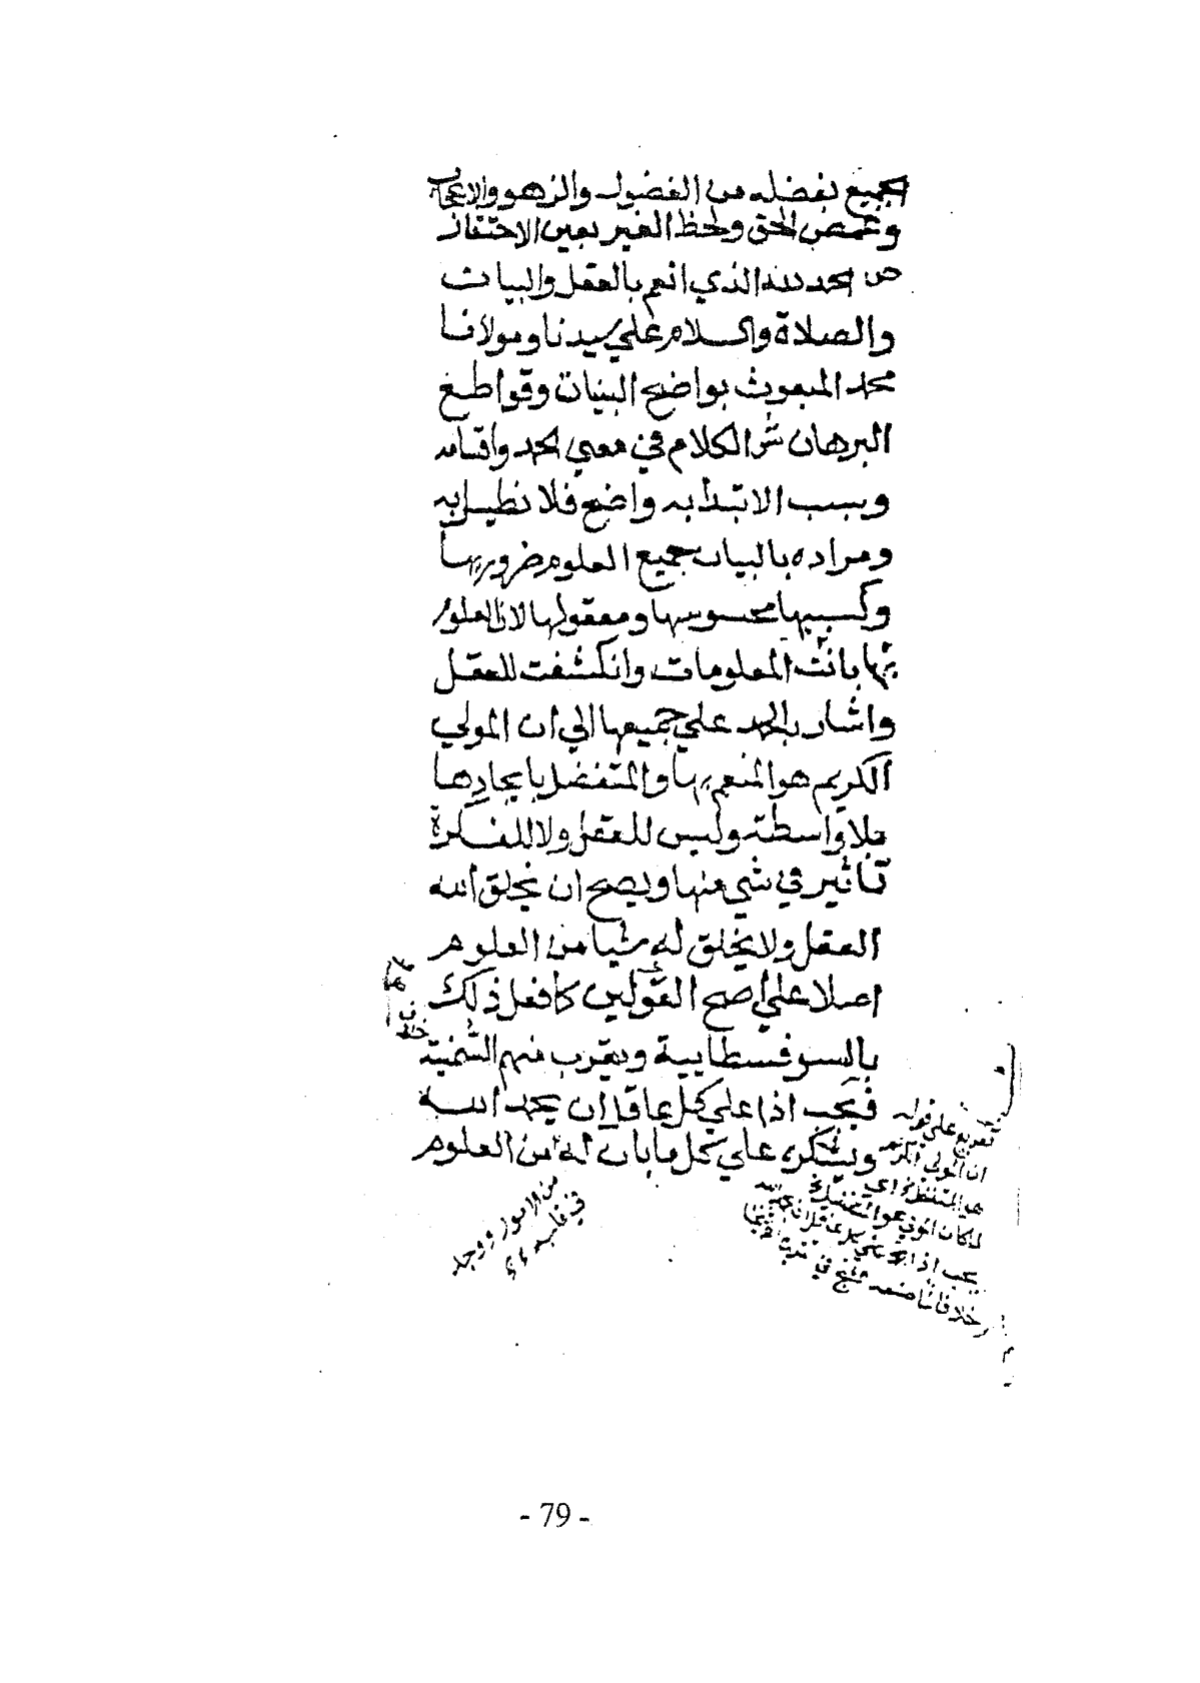 الجميع بفضله من الفضول والزهو والاعجاب
وغمص الحق ولحظ الغير بعين الاحتقار
ص الحمد لله الذي انعم بالعقل والبيان
والصلاة والسلام علي سيدنا ومولانا
محمد المبعوث بواضح البينات وقواطع
البرهان ش الكلام في معني الحمد واقسامه
وسبب الابتدا به واضح فلا نطيل به
ومراده بالبيان جميع العلوم ضروريها
وكسبيها محسوسها ومعقولها لان العلوم
بها بانت المعلومات وانكشفت للعقل
واشار بالحمد علي جميعها الي ان المولي
الكريم هو المنعم بها والمتفضل بايجادها
بلا واسطة وليس للعقل ولا للفكرة
تاثير في شي منها ويصح ان يخلق الله
العقل ولا يخلق له شيا من العلوم
اصلا علي اصح القولين كما فعل ذلك
بالسوفسطايية ويقرب منهم السمنية
فيجب اذا علي كل عاقل ان يحمد الله
ويشكره علي كل ما بان له من العلوم
تفريع علي قوله
ان المولي الكريم
هو المتفضل اي
يجب اذا
من الامور ووجد
في قلبه
- 79 -